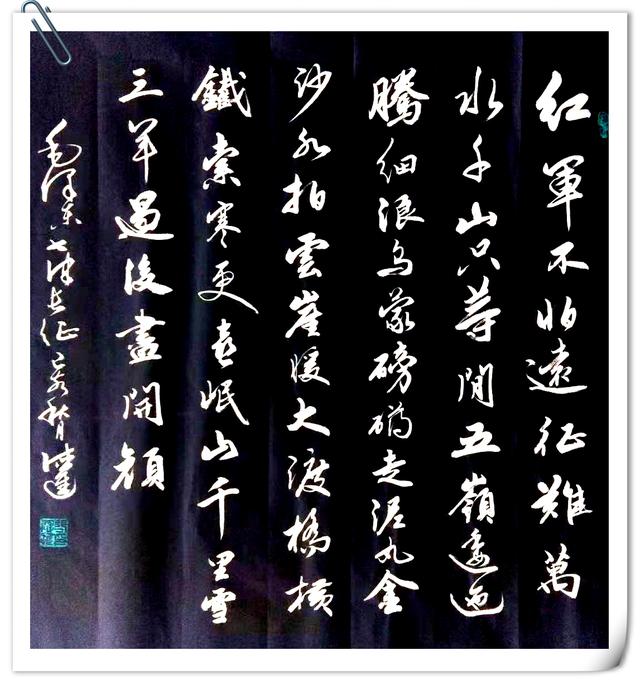 紅軍不怕遠征難萬
水千山只等閒五嶺逶迤
騰細浪烏蒙磅礴走泥丸金
沙水拍雲崖暖大渡橋橫
鐵索寒更喜岷山千里雪
三軍過後盡開顏
毛澤東七律長征